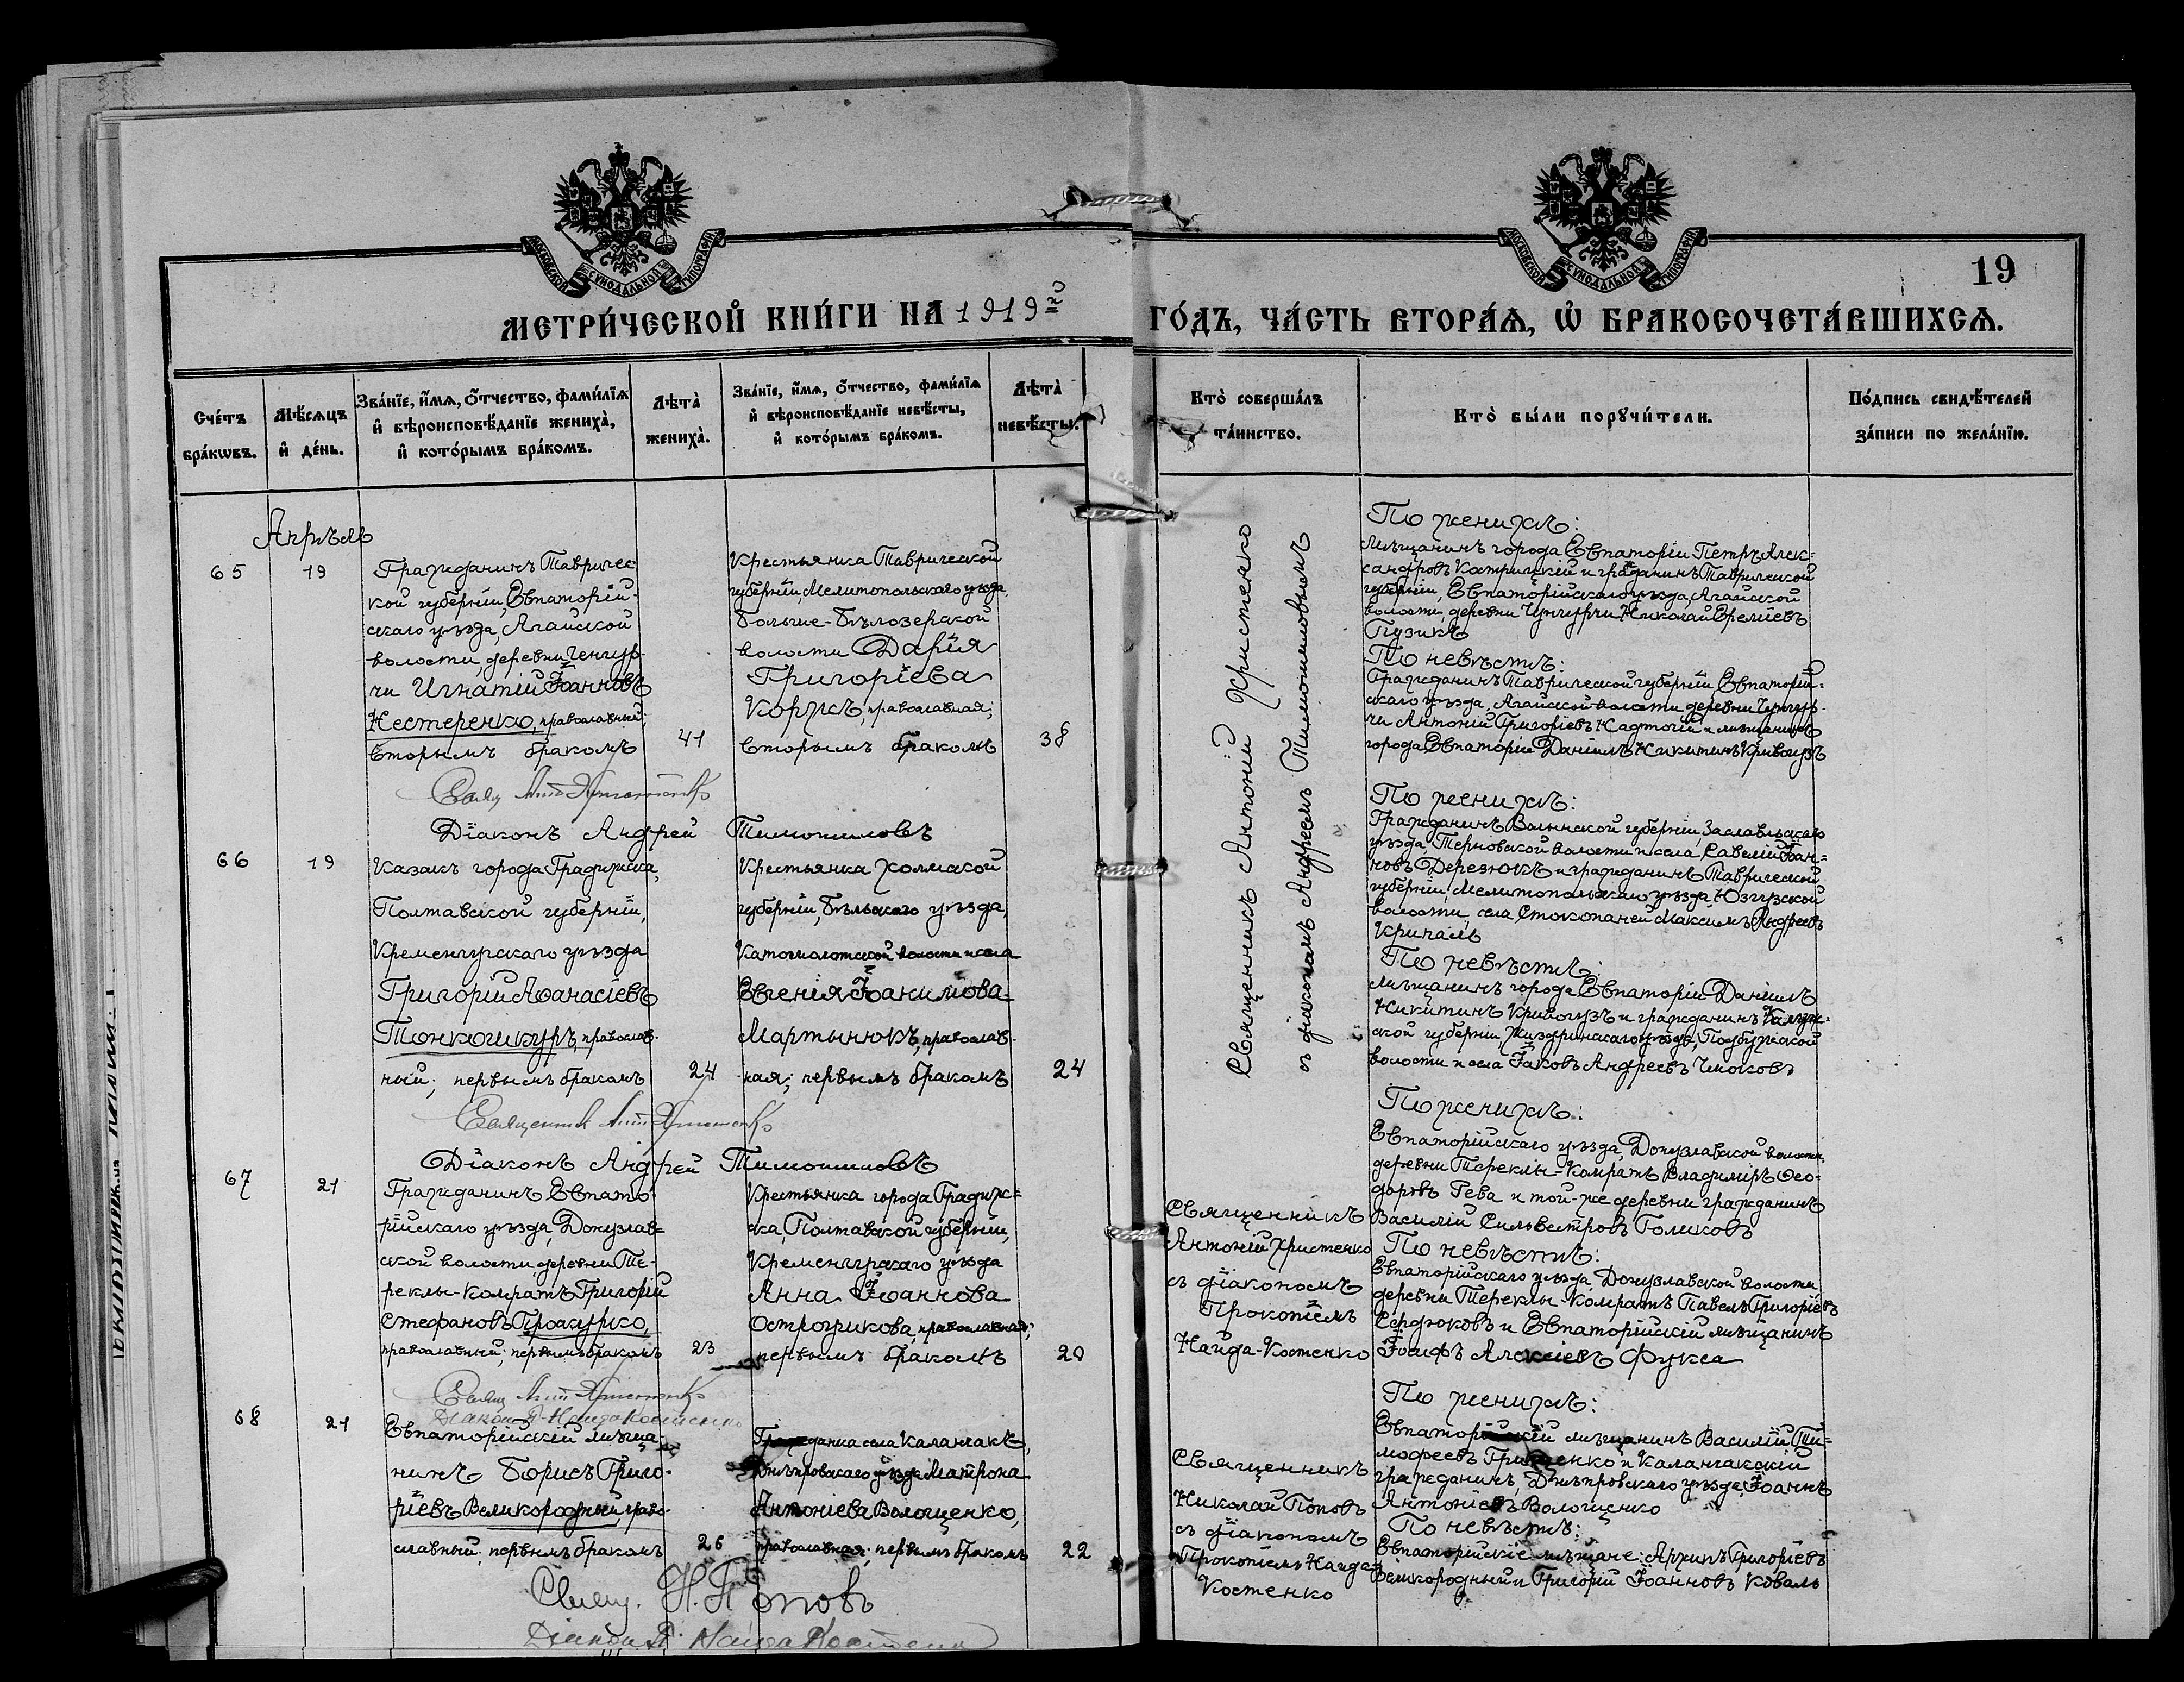 МОСКОВСКОЙ СѴНОДАЛЬНОЙ ТИПОГРАФІИ
МОСКОВСКОЙ СѴНОДАЛЬНОЙ ТИПОГРАФІИ
19
МЕТРИ́ЧЕСКОЙ КНИ́ГИ НА 1919й ГО́ДЪ, ЧА́СТЬ ВТОРА́Я, Ѡ҆ БРАКОСОЧЕТА́ВШИХСЯ.
Сче́тъ бра́кѡвъ.
Мѣ́сяцъ и҆ де́нь.
Зва́нїе, и҆́мя, ѻ҆́тчество, фами́лїя
и҆ вѣроисповѣ́данїе жениха̀,
и҆ кото́рымъ бра́комъ.
Лѣта̀ жениха̀.
Зва́нїе, и҆́мя, ѻ҆́тчество, фами́лїя
и҆ вѣроисповѣ́данїе невѣ́сты,
и҆ кото́рымъ бра́комъ.
Лѣта̀ невѣ́сты.
Кто̀ соверша́лъ та́инство.
Кто̀ бы́ли порꙋчи́тели.
По́дпись свидѣ́телей
за́писи по жела́нїю.
Апрѣль
65
19
Гражданинъ Тавричес
кой губерніи, Евпаторій-
скаго уѣзда, Агайской
волости, деревни Ченгур-
чи Игнатій Іоанновъ
Нестеренко, православный;
вторымъ бракомъ
41
Крестьянка Таврической
губерніи, Мелитопольскаго уѣзда,
Больше-Бѣлозерской
волости Дарія
Григоріева
Коржъ, православная;
вторымъ бракомъ
38
Діаконъ Андрей Тимошиловъ
Священникъ Антоній Христенко
съ діакономъ Андреемъ Тимошиловымъ
По женихѣ:
Мѣщанинъ города Евпаторіи Петръ Алек=
сандровъ Кастрицкій и гражданинъ Таврической
губерніи, Евпаторійскаго уѣзда, Агайской
волости, деревни Чунгурчи Николай
Пузикъ
По невѣстѣ:
Гражданинъ Таврической губерніи Евпаторій=
скаго уѣзда, Агайской волости деревни Чунгур-
чи Антоній Григоріевъ и мѣщанинъ
города Евпаторіи Даніилъ Никитинъ Кривогузъ
66
19
Казакъ города Градижска,
Полтавской губерніи,
Кременчугскаго уѣзда
Григорій Аѳанасіевъ
православ-
ный; первымъ бракомъ
24
Крестьянка Холмской
губерніи, Бѣльскаго уѣзда,
волости и села
Евгенія
Мартынюкъ, православ-
ная; первымъ бракомъ
24
Діаконъ Андрей Тимошиловъ
По женихѣ:
Гражданинъ Волынской губерніи, Заславльскаго
уѣзда, Терновской волости и села, Савелій Іоан=
новъ Дерезюкъ и гражданинъ Таврической
губерніи, Мелитопольскаго уѣзда,
волости, села Стокопаней Максимъ Андреевъ
По невѣстѣ:
Мѣщанинъ города Евпаторіи Даніилъ
Никитинъ Кривогузъ и гражданинъ Калуж=
ской губерніи, Жиздринскаго уѣзда,
волости и села Іаковъ Андреевъ
67
21
Гражданинъ Евпато-
рійскаго уѣзда, Донузлав=
ской волости деревни Те-
реклы-Комратъ Григорій
Стефановъ Проскурко,
православный; первымъ бракомъ
23
Крестьянка города Градиж=
ска, Полтавской губерніи,
Кременчугскаго уѣзда
Анна Іоаннова
православная;
первымъ бракомъ
20
Священникъ
Антоній Христенко
съ діакономъ
Прокопіемъ
Найда-Костенко
По женихѣ:
Евпаторійскаго уѣзда, Донузлавской волости,
деревни Тереклы-Комратъ Владиміръ Ѳео-
доровъ Гева и той-же деревни гражданинъ
Василій Сильвестровъ Голиковъ
По невѣстѣ:
Евпаторійскаго уѣзда Донузлавской волости,
деревни Тереклы-Комратъ Павелъ Григоріевъ
Сердюковъ и Евпаторійскій мѣщанинъ
Іосифъ Алексіевъ Фукса
68
21
Евпаторійскій мѣща-
нинъ Борисъ Григо-
ріевъ Великородный, право-
славный; первымъ бракомъ
26
Гражданка села Каланчакъ,
Днѣпровскаго уѣзда Матрона
Антоніева Волощенко,
православная; первымъ бракомъ
22
Свящ. Н. Поповъ
Діаконъ П. Найда Костенко
Священникъ
Николай Поповъ
съ діакономъ
Прокопіемъ Найда-
Костенко
По женихѣ:
Евпаторійскій мѣщанинъ Василій Ти=
мофеевъ и Каланчакскій
гражданинъ, Днѣпровскаго уѣзда, Іоаннъ
Антоніевъ Волощенко
По невѣстѣ:
Евпаторійскіе мѣщане: Архипъ Григоріевъ
Великородный и Григорій Іоанновъ Коваль